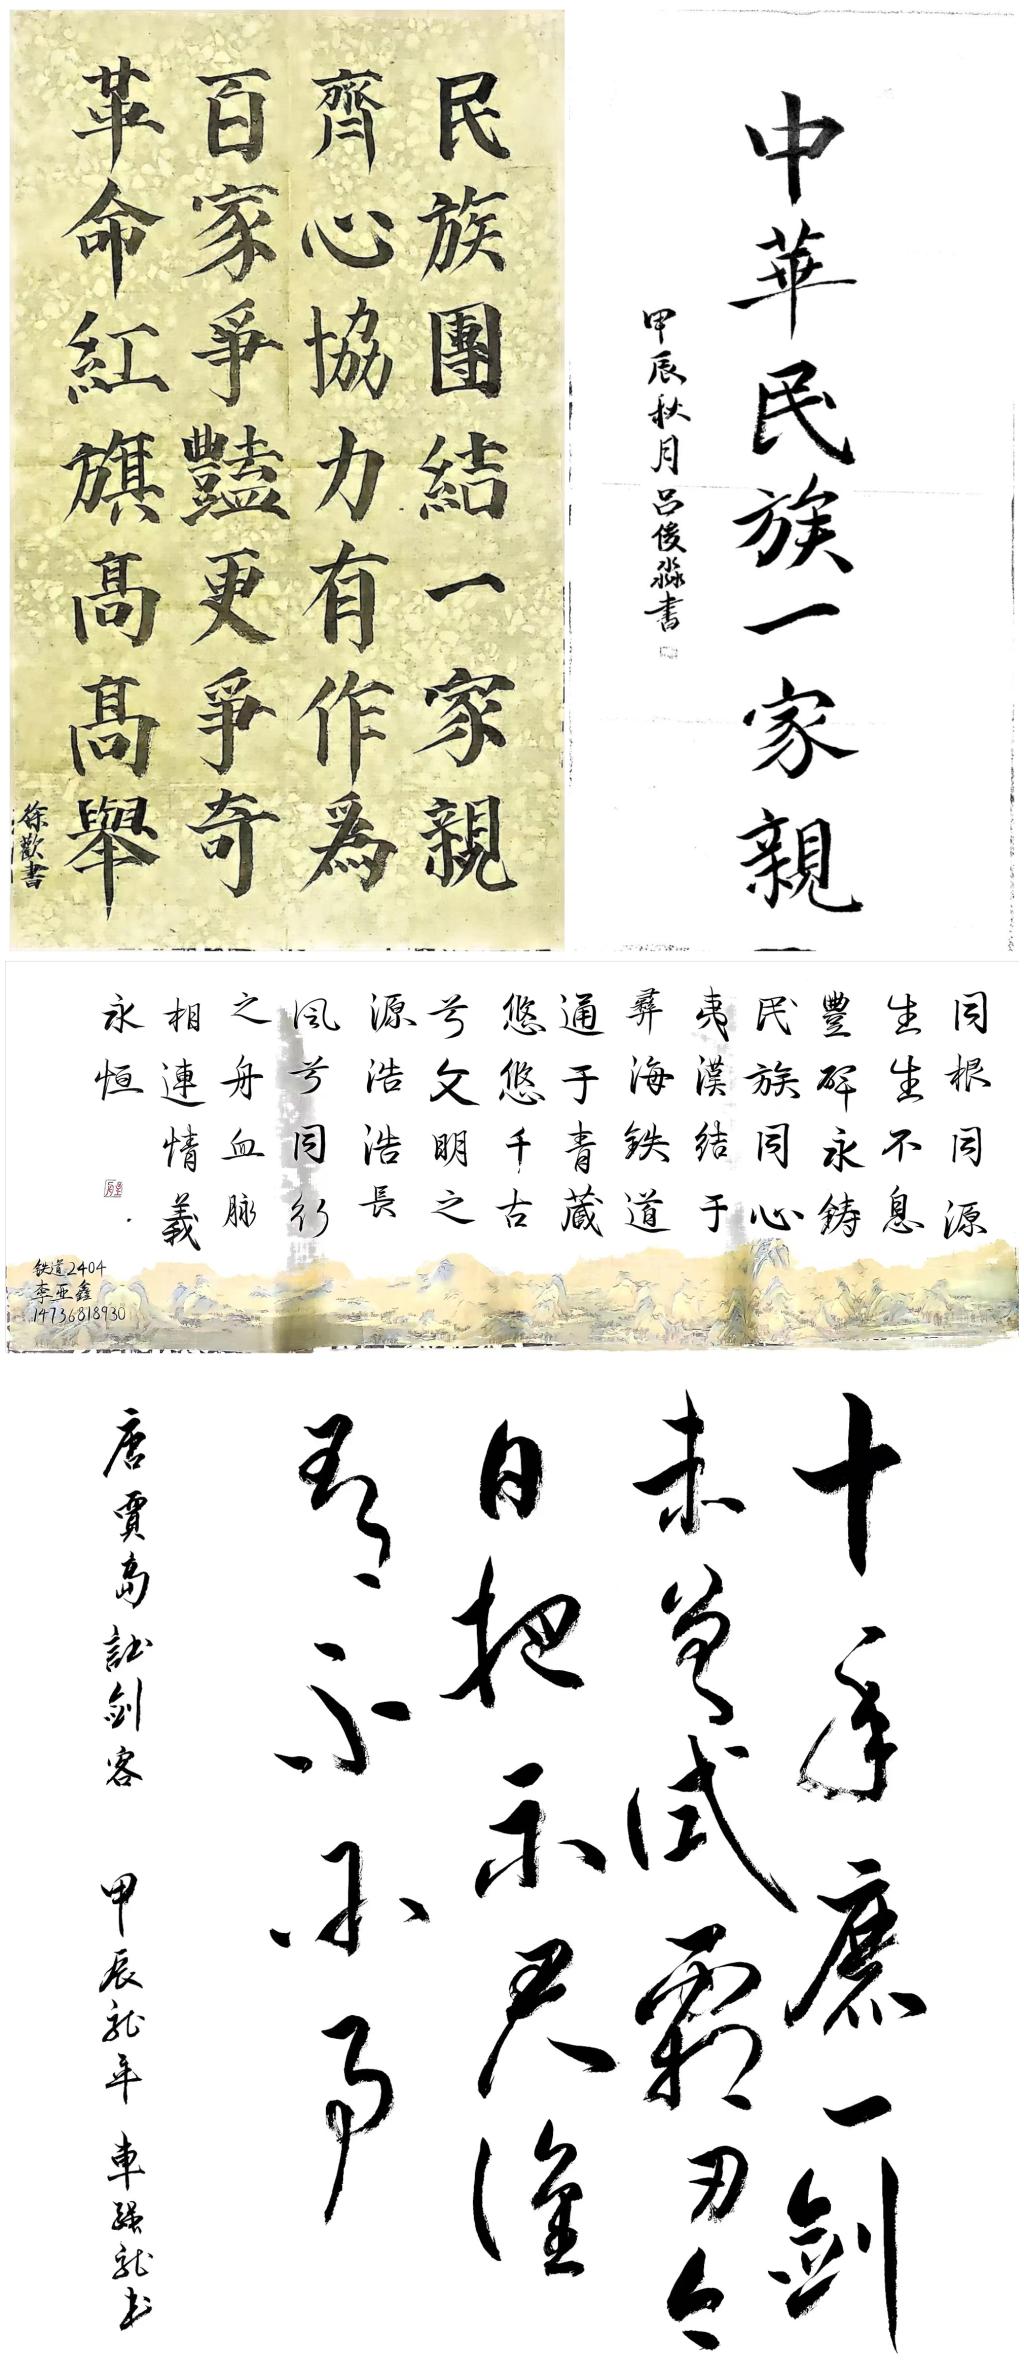 民族團結一家親
齊心協力有作爲
百家爭豔更爭奇
革命紅旗髙髙舉
徐歡書
中華民族一家親
甲辰秋月吕俊淼書
同根同源
生生不息
豐碑永鋳
民族同心
夷漢結于
彝海鉄道
通于青藏
悠悠千古
兮文明之
源浩浩長
風兮同行
之舟血脉
相連情義
永恒
铁道2404
李亚鑫
14736818930
十年磨一劍
未曾試霜刃今
日把示君誰
為不平事
唐賈島詩劍客 甲辰龙年 車强龙书